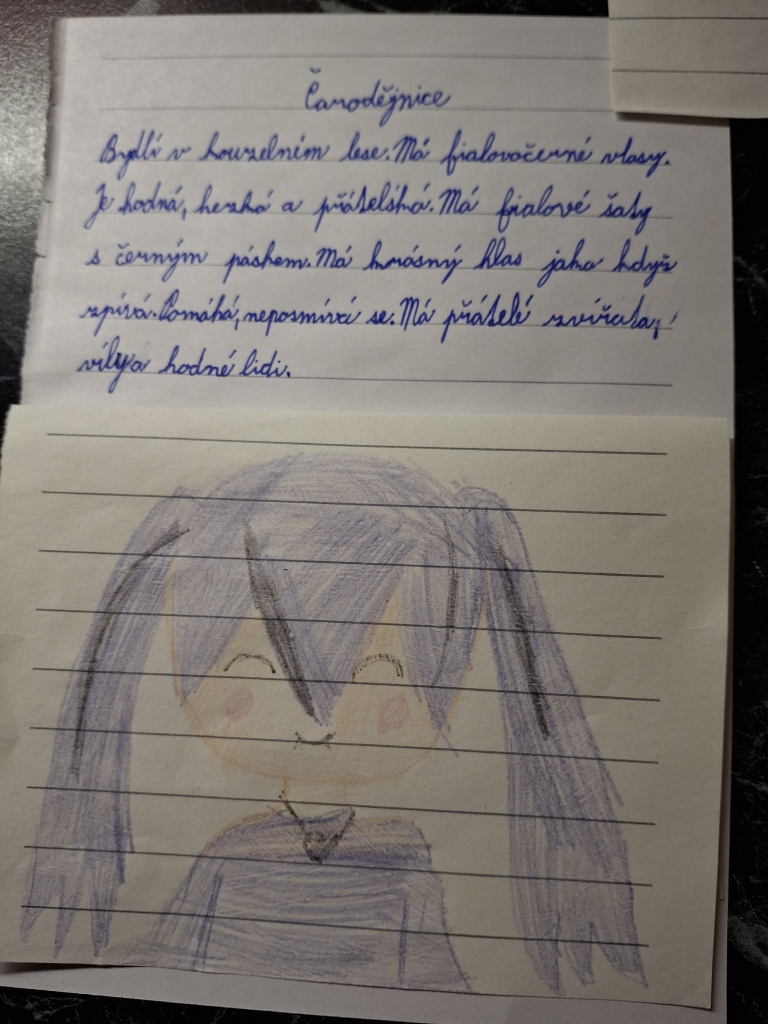 Čarodějnice
Bydlí v kouzelném lese. Má fialovočerné vlasy.
Je hodná, hezká a přátelská. Má fialové šaty
s černým páskem. Má krásný hlas jako když
zpívá. Pomáhá, neposmívá se. Má přátelé zvířata,
víly a hodné lidi.